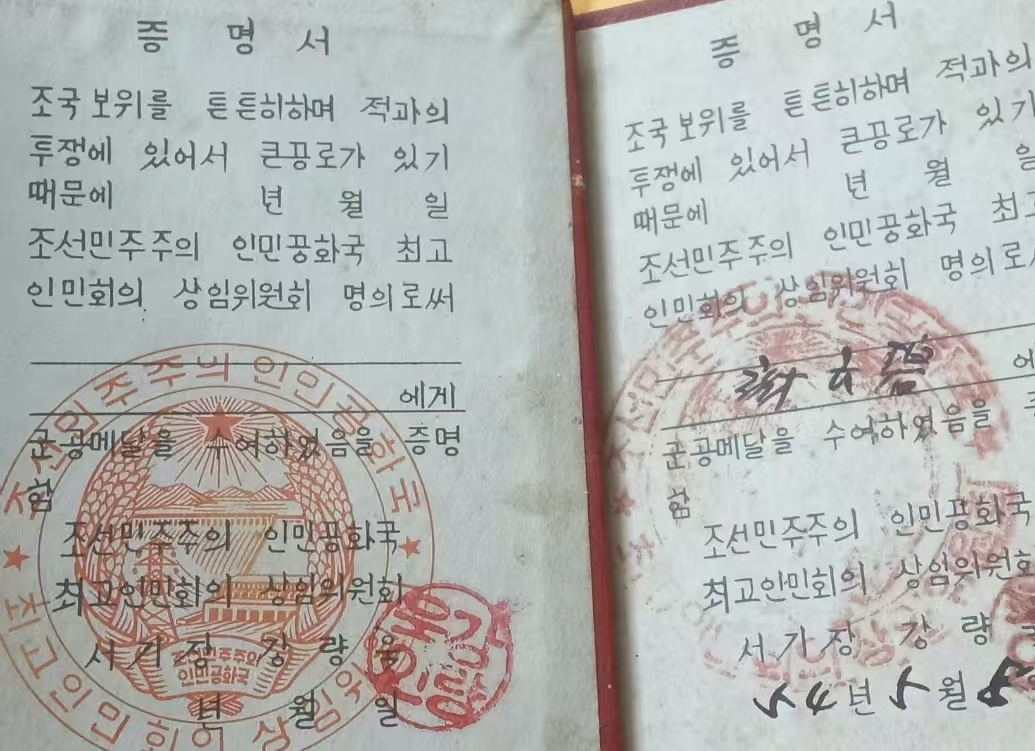 증 명 서
조국 보위를 튼튼히하며 적과의
투쟁에 있어서 큰공로가 있기
때문에 년 월 일
조선민주주의 인민공화국 최고
인민회의 상임위원회 명의로써
에게
군공메달을 수여하였음을 증명
함
조선민주주의 인민공화국
최고인민회의 상임위원회
서기장 강 량 욱
년 월 일
조선민주주의 인민공화국
최고인민회의 상임위
조선민주주의
인민공화국
증 명 서
조국 보위를 튼튼히하며 적과의
투쟁에 있어서 큰공로가 있기
때문에 년 월 일
조선민주주의 인민공화국 최고
인민회의 상임위원회 명의로써
에
군공메달을 수여하였음을
함
조선민주주의 인민공화국
최고인민회의 상임위원회
서기장 강 량
54년 5월